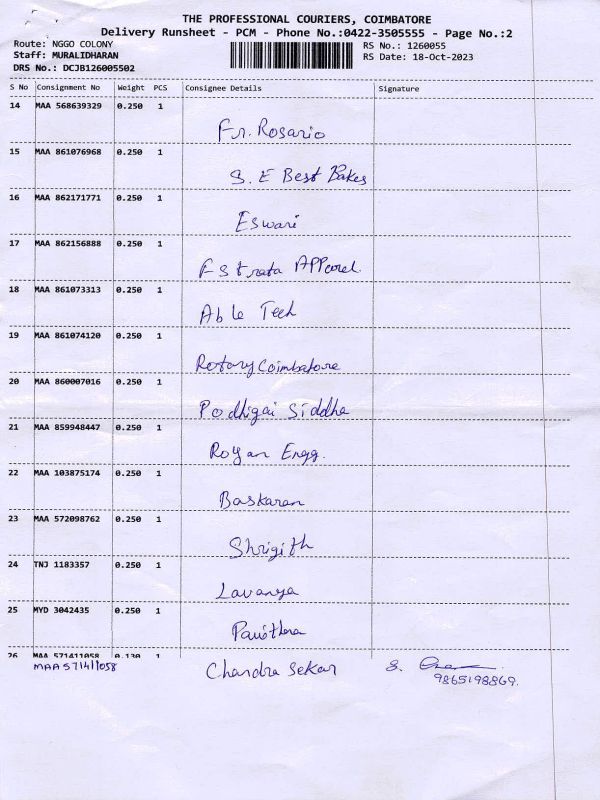 THE PROFESSIONAL COURIERS, COIMBATORE
Delivery Runsheet - PCM - Phone No.:0422-3505555 - Page No.:2
Route: NGGO COLONY RS No.: 1260055
Staff: MURALIDHARAN RS Date: 18-Oct-2023
DRS No.: DCJB126005502
S No Consignment No Weight PCS Consignee Details Signature
14 MAA 568639329 0.250 1
Fr. Rosario
15 MAA 861076968 0.250 1
S. E Best Bakes
16 MAA 862171771 0.250 1
Eswari
17 MAA 862156888 0.250 1
F Strata APParel
18 MAA 861073313 0.250 1
Able Tech
19 MAA 861074120 0.250 1
Rotary Coimbatore
20 MAA 860007016 0.250 1
Podhigai Siddha
21 MAA 859948447 0.250 1
Royan Engg.
22 MAA 103875174 0.250 1
Baskaran
23 MAA 572098762 0.250 1
Shrigith
24 TNJ 1183357 0.250 1
Lavanya
25 MYD 3042435 0.250 1
26 MAA 571411058 0.130 1
MAA571411058 Chandra Sekar S.
9865198869.